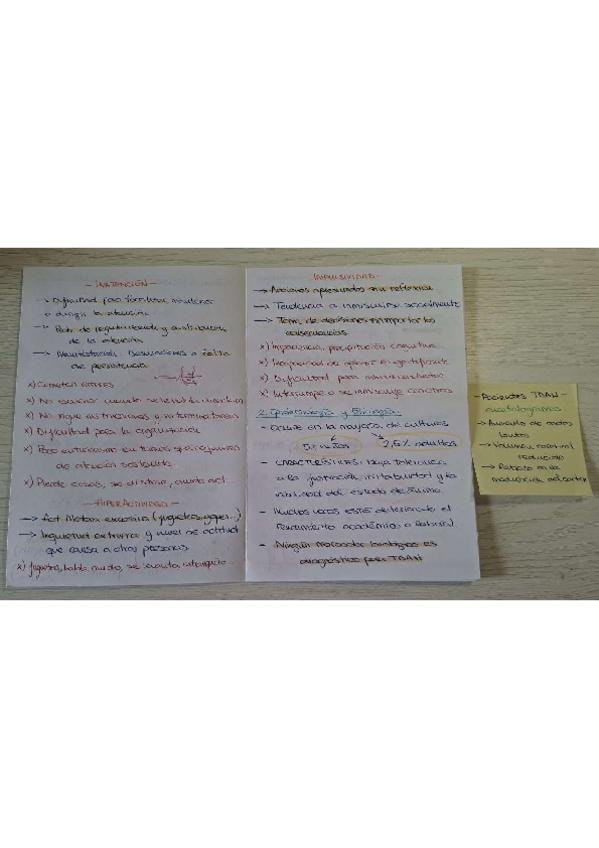 - INATENCIÓN -
→ Dificultad para focalizar, mantener
o dirigir la atención.
→ Déficit de regulación y distribución
de la atención
→ Manifestación: Desviaciones o falta
de persistencia
x) Cometen errores
x) No escuchar cuando se le habla
x) No sigue instrucciones y no termina tareas
x) Dificultad para la organización
x) Poco entusiasmo en tareas que requieren
de atención sostenida
x) Pierde cosas, se distrae,
- HIPERACTIVIDAD -
→ Act. Motora excesiva (
→ Inquietud extrema y nivel de actitud
que cansa a otras personas
x) Juguetea, habla mucho, se levanta
- IMPULSIVIDAD -
→ Acciones apresuradas sin reflexión
→ Tendencia a inmiscuirse socialmente
→ Toma de decisiones sin importar las
consecuencias
x) Impaciencia, precipitación
x) Incapacidad de
x) Dificultad para
x) Interrumpe o se inmiscuye con otros
2. Epidemiología y Etiología:
- Ocurre en la mayoría de culturas
5% niños 2,5% adultos
- CARACTERÍSTICAS: Baja tolerancia
a la frustración, irritabilidad y la
labilidad del estado de ánimo.
- Muchas veces está deteriorado el
rendimiento académico o laboral
- Ningún marcador biológico es
diagnóstico para TDAH
- Pacientes TDAH -
encefalogramas
→ Aumento de ondas
lentas
→ Volumen cerebral
reducido
→ Retraso en la
maduración del córtex